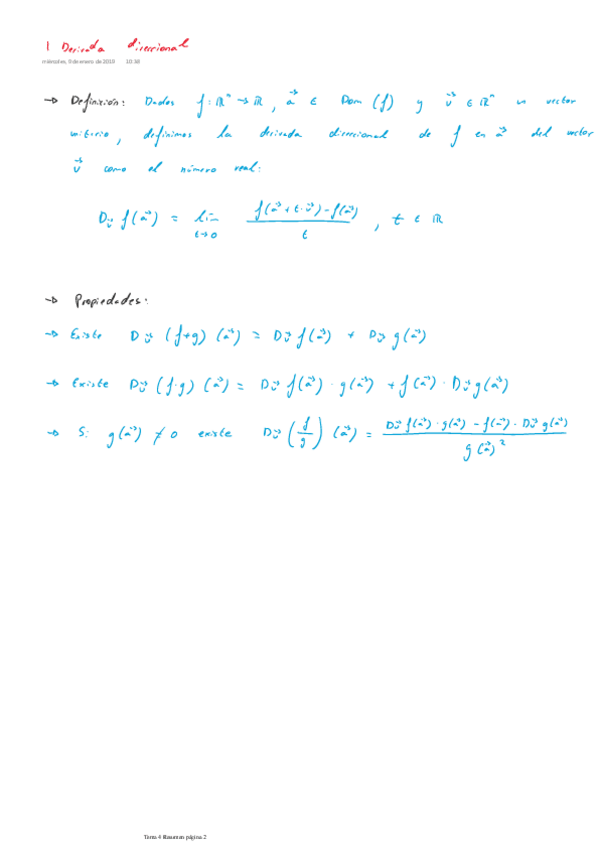 1 Derivada direccional
miércoles, 9 de enero de 2019 10:58
→ Definición: Dados f: ℝⁿ → ℝ, a⃗ ∈ Dom (f) y v⃗ ∈ ℝⁿ un vector
unitario, definimos la derivada direccional de f en a⃗ del vector
v⃗ como el número real:
D_v⃗ f(a⃗) = lim_{t→0} (f(a⃗ + t·v⃗) - f(a⃗)) / t , t ∈ ℝ
→ Propiedades:
→ Existe D_v⃗ (f+g) (a⃗) = D_v⃗ f(a⃗) + D_v⃗ g(a⃗)
→ Existe D_v⃗ (f·g) (a⃗) = D_v⃗ f(a⃗) · g(a⃗) + f(a⃗) · D_v⃗ g(a⃗)
→ Si g(a⃗) ≠ 0 existe D_v⃗ (f/g) (a⃗) = (D_v⃗ f(a⃗) · g(a⃗) - f(a⃗) · D_v⃗ g(a⃗)) / g(a⃗)²
Tema 4 Resumen página 2